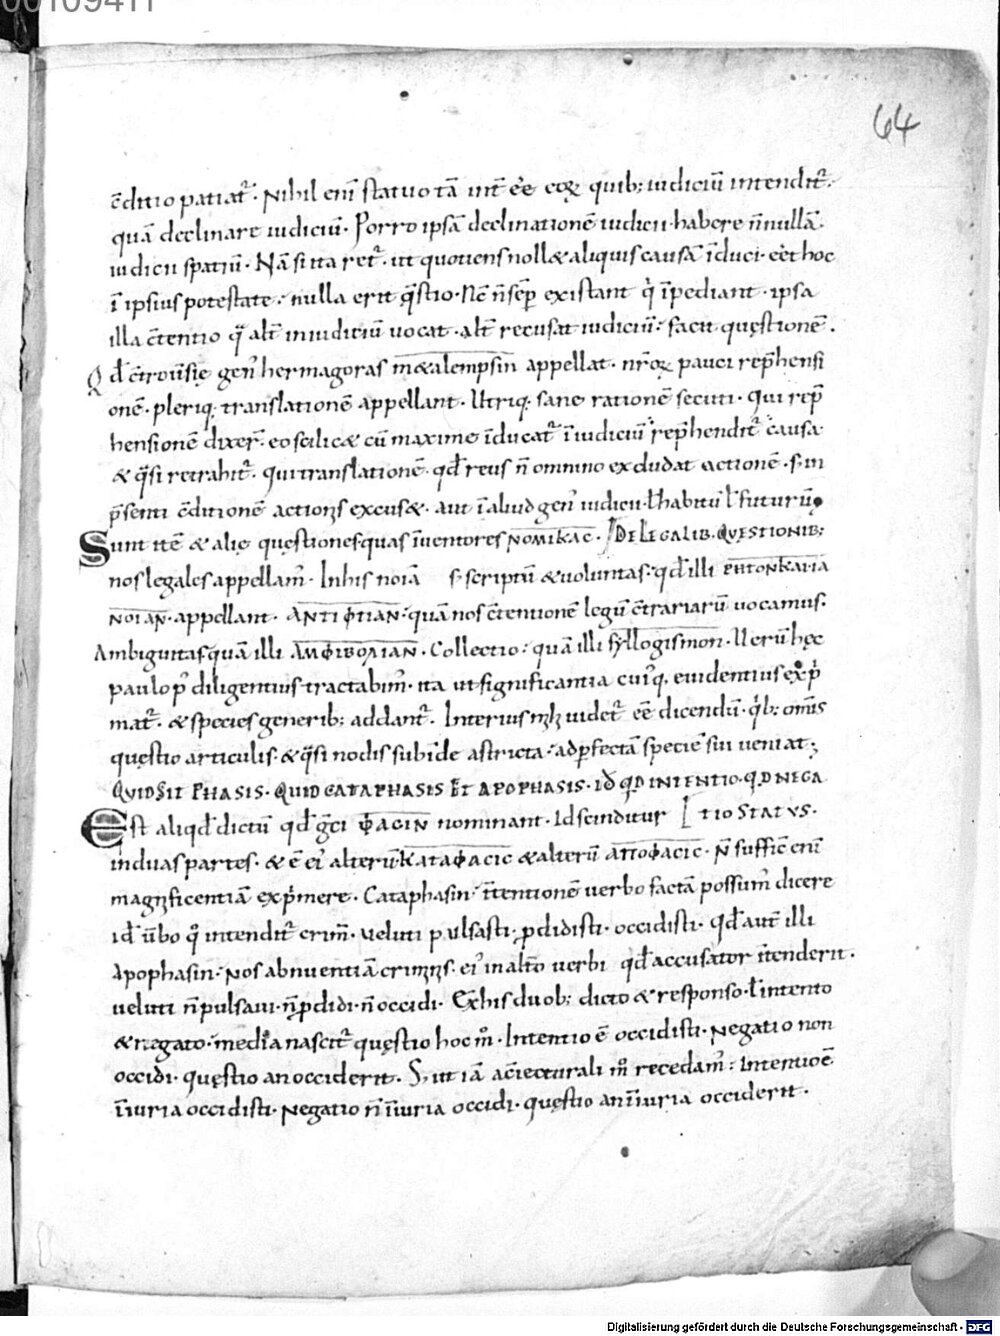 00109411
64
c̄ditio patiat᷑. Nihil eni᷑ statuo tā int̄ ēe eoꝝ quib; iudiciū intendit᷑.
quā declinare iudiciū. Porro ipsā declinationē iudicii habere n̄nullā
iudicii spatiū. Nā si ita ret᷑. ut quotiens noll& aliquis causā īduci. eēt hoc
ī ipsius potestate. nulla erit q̄stio. Nē n̄ semp̄ existant q' īpediant. ipsa
illa c̄tentio q̄ alt̄ in iuditiū uocat. alt̄ recusat iudiciū. facit quęstionē.
Qd̄ c̄trouersię gen' hermagoras m&alempsin appellat. nr̄oꝝ pauci rep̄hensi
onē. pleriq; translationē appellant. Utriq; sane rationē secuti. Qui rep̄
hensionē dixer̄. eo scilic& cū maxime īducat᷑ ī iudiciū rep̄hendit᷑ causa
& q̄si retrahit᷑. qui translationē. qd̄ reus n̄ omnino excludat actionē. s; in
p̄senti c̄ditionē actionis excus&. aut ī aliud gen' iudicii. l̄ habitū l̄ futurū.
Sunt itē & alię quęstiones quas inuentores NOMIKAC. DE LEGALIB. QVESTIONIB;
nos legales appellam'. In his noīa s; scriptū & uoluntas. qd̄ illi PHTONKAIΔIA
NOIAN. appellant. ANTIΦTIAN. quā nos c̄tentionē legū c̄trariarū uocamus.
Ambiguitas quā illi AMΦIBOΛIAN. Collectio. quā illi syllogismon. Uerū hęc
paulo p' diligentius tractabim'. ita ut significantia cui'q; euidentius exp̄
mat᷑. & species generib; addant᷑. Interius m̄ uidet᷑ eē dicendū. q'b; om̄is
quęstio articulis. & q̄si nodis subinde astricta. ad p̄fectā speciē sui ueniat;
QVID SIT PHASIS. QVID CATAPHASIS ET APOPHASIS. ID QD INTENTIO. QD NEGA
Est aliqd̄ dictū qd̄ gr̄ci ΦACIN nominant. Id scinditur TIO STATVS.
in duas partes. & ē ei' alterū KATAΦACIC & alterū AΠOΦACIC. N̄ suffic̄ eni᷑
magnificentiā exp'mere. Cataphasin. ītentionē uerbo factā possum' dicere
id̄ ūbo q° intendit᷑ crim̄. ueluti pulsasti. p̄didisti. occidisti. qd̄ aut̄ illi
Apophasin. nos abnuentiā criminis. ei' in alt̄o uerbi qd̄ accusator ītenderit.
ueluti n̄ pulsaui. n̄ p̄didi. n̄ occidi. Ex his duob; dicto & responso. l̄ intento
& negato. media nascit᷑ quęstio hoc m°. Intentio ē occidisti. Negatio non
occidi. quęstio an occiderit. S; ut iā a c̄iecturali m° recedam'. Intentio ē
īiuria occidisti. Negatio n̄ īiuria occidi. quęstio an īiuria occiderit.
Digitalisierung gefördert durch die Deutsche Forschungsgemeinschaft - DFG